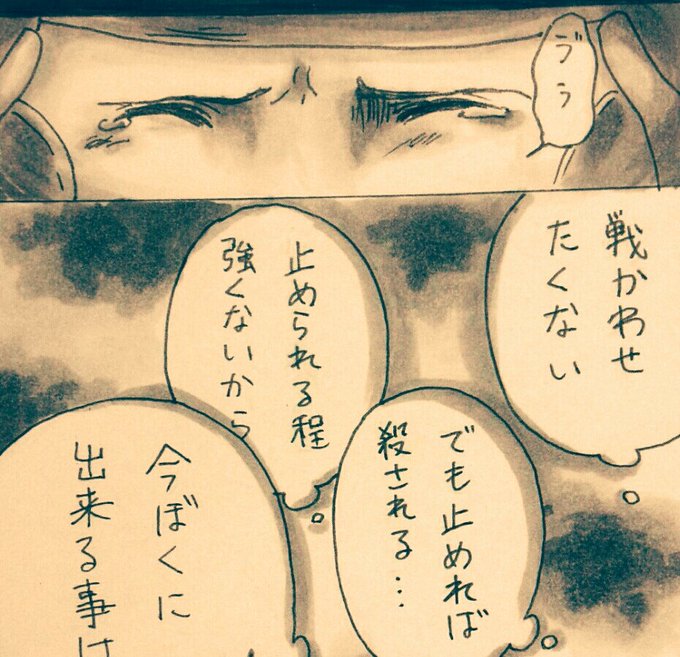 ゔぅ
戦かわせ
たくない
でも止めれば
殺される…
止められる程
強くないから
今ぼくに
出来る事は